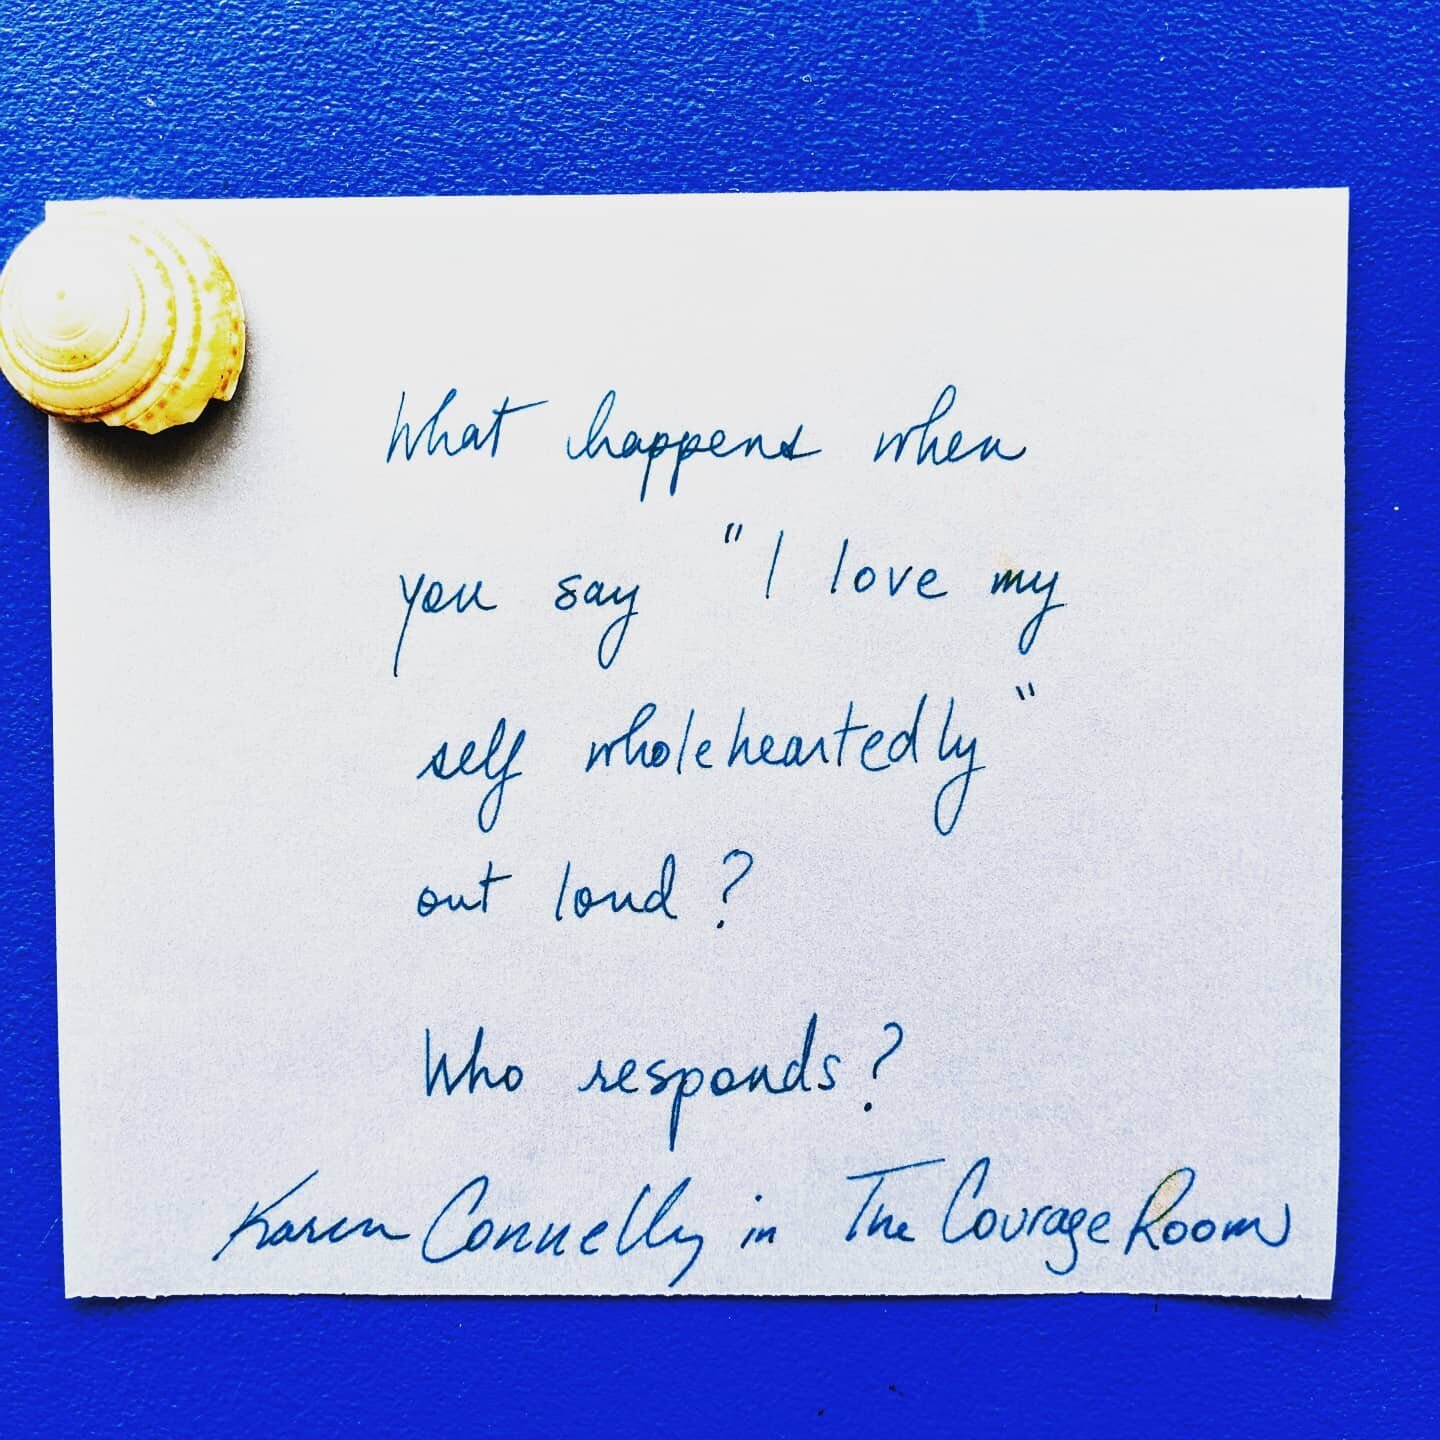 What happens when
you say "I love my
self wholeheartedly"
out loud?
Who responds?
Karen Connelly in The Courage Room